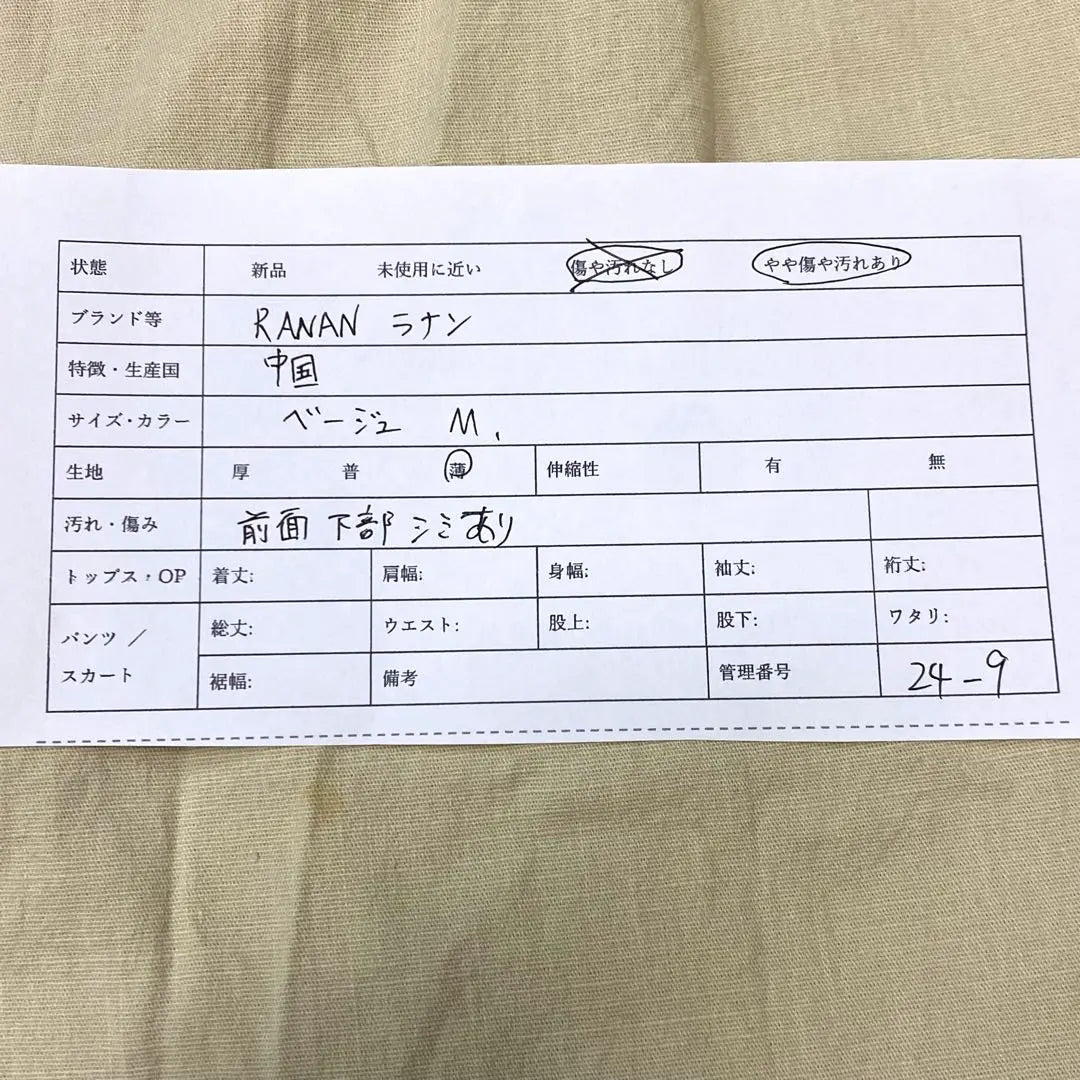 状態 新品 未使用に近い 傷や汚れなし やや傷や汚れあり
ブランド等 RANAN ラナン
特徴・生産国 中国
サイズ・カラー ベージュ M.
生地 厚 普 薄 伸縮性 有 無
汚れ・傷み 前面 下部 シミあり
トップス・OP 着丈: 肩幅: 身幅: 袖丈: 裄丈:
パンツ／スカート 総丈: ウエスト: 股上: 股下: ワタリ:
裾幅: 備考 管理番号 24-9